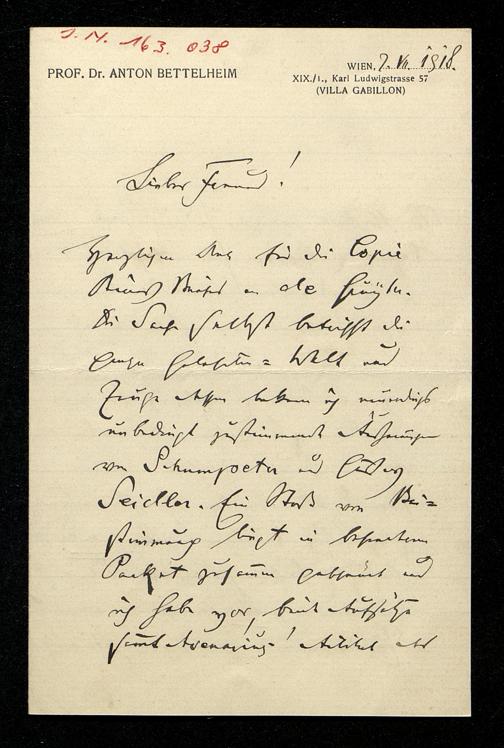 J. N. 163.038
PROF. Dr. ANTON BETTELHEIM
WIEN, 7. VII. 1918.
XIX./1., Karl Ludwigstrasse 57
(VILLA GABILLON)
Lieber Freund!
Herzlichen Dank für die Copie
Ihres Briefes an
Die Sache selbst betrifft die
ganze Gelehrten= Welt und
unbedingt zustimmende Äußerungen
von Schumpeter und Gustav
Seidler. Ein Stoß von Bei=
liegt in besonderem
Packet zusammen und
ich habe vor, beide Aufsätze
sammt Avenarius' Artikel